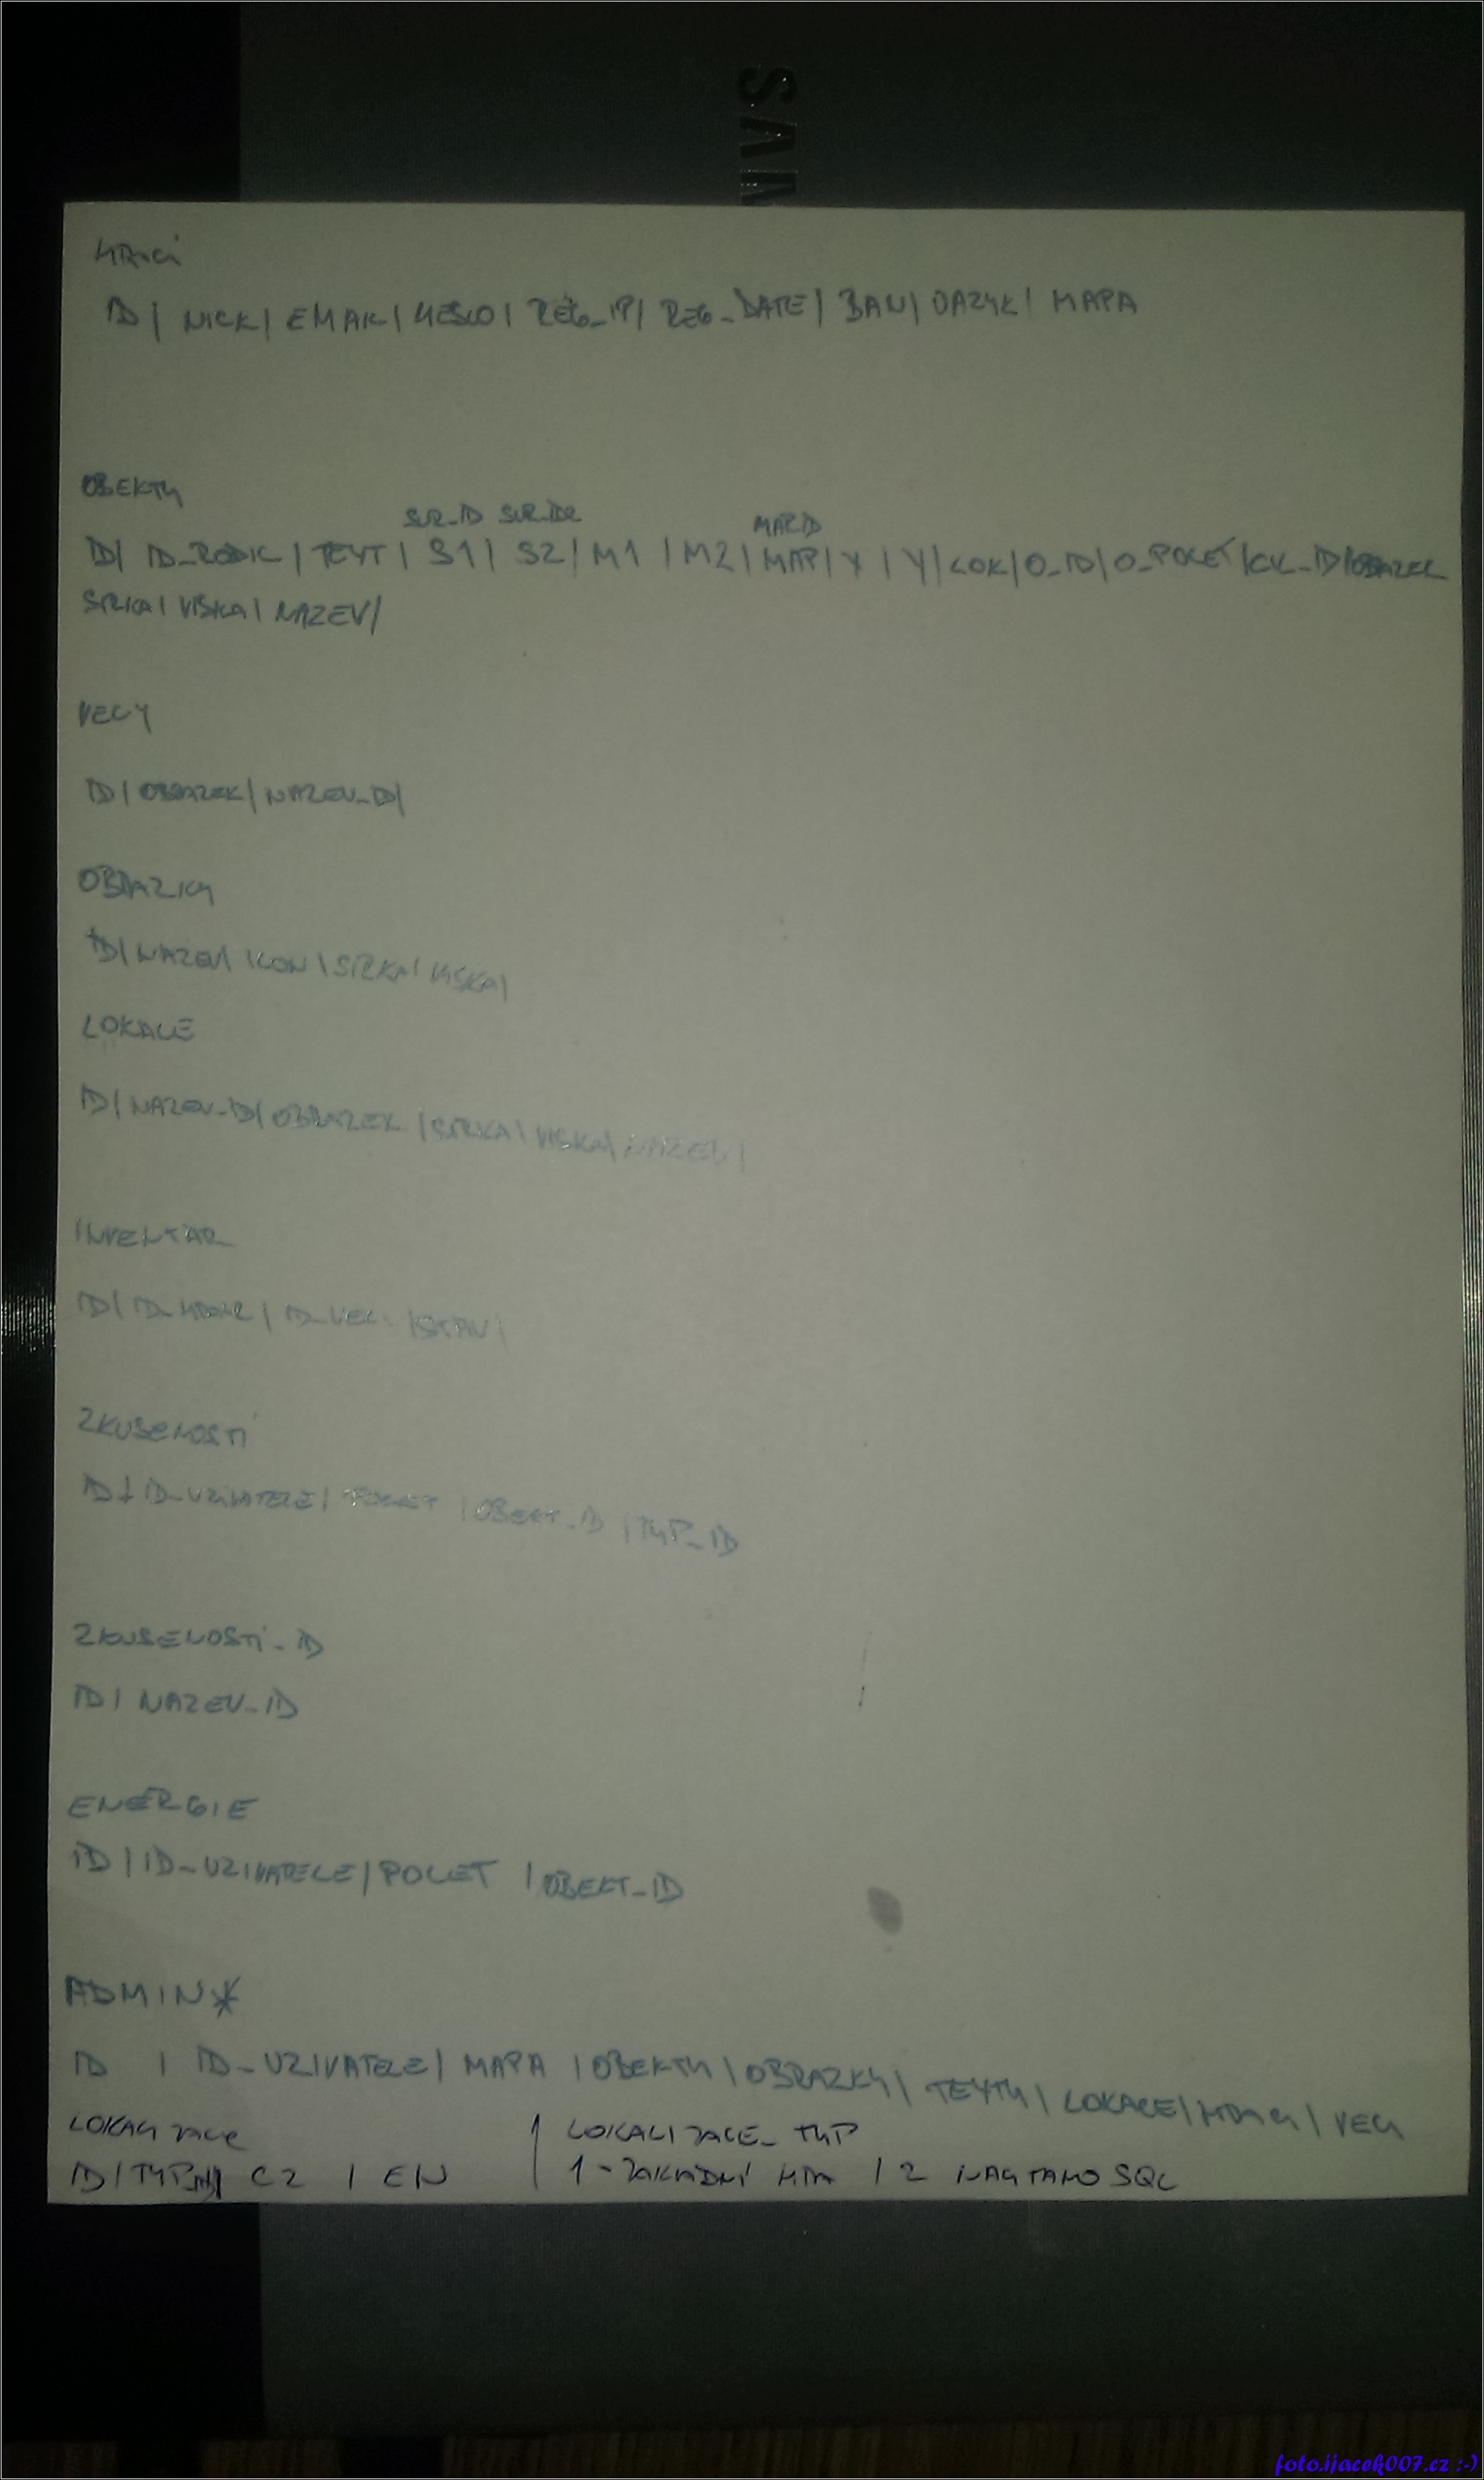 SAM
HRÁČI
ID | NICK | EMAIL | HESLO | REG_IP | REG_DATE | BAN | JAZYK | MAPA
OBEKTY
SUR_ID SUR_ID2 MAP_ID
ID | ID_RODIC | TEXT | S1 | S2 | M1 | M2 | MAP | X | Y | LOK | O_ID | O_POCET | CIL_ID | OBRAZEK
SIRKA | VISKA | NAZEV |
VECY
ID | OBRAZEK | NAZEV_ID |
OBRAZKY
ID | NAZEV | IKON | SIRKA | VISKA |
LOKACE
ID | NAZEV_ID | OBRAZEK | SIRKA | VISKA | NAZEV |
INVENTAR
ID | ID_HRAC | ID_VEC | STAV |
ZKUSENOSTÍ
ID | ID_UZIVATELE | POCET | OBEKT_ID | TYP_ID
ZKUSENOSTÍ_ID
ID | NAZEV_ID
ENERGIE
ID | ID_UZIVATELE | POCET | OBEKT_ID
ADMIN*
ID | ID_UZIVATELE | MAPA | OBEKTY | OBRAZKY | TEXTY | LOKACE | HRACI | VECI
LOKALIZACE | LOKALIZACE_TYP
ID | TYP_ID | CZ | EN | 1-ZÁKLADNÍ HRA | 2 NAČTANO SQL
foto.ijacek007.cz :-)